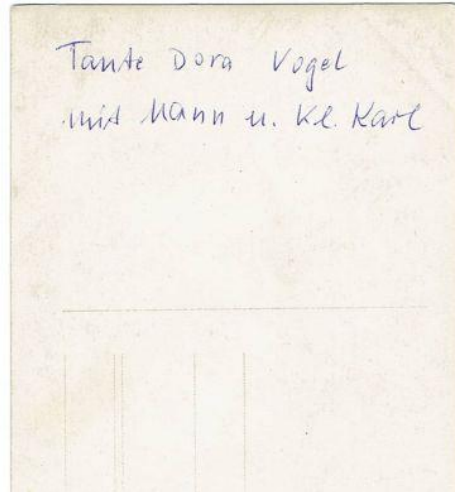 Tante Dora Vogel
mit Mann u. Kl. Karl